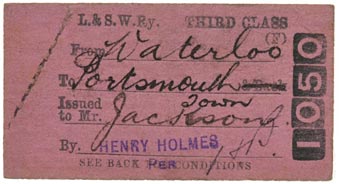 L. & S. W. Ry. THIRD CLASS
(F)
From Waterloo
To Portsmouth & Back
Town
Issued to Mr. Jackson
By. HENRY HOLMES,
Per
SEE BACK CONDITIONS
1050